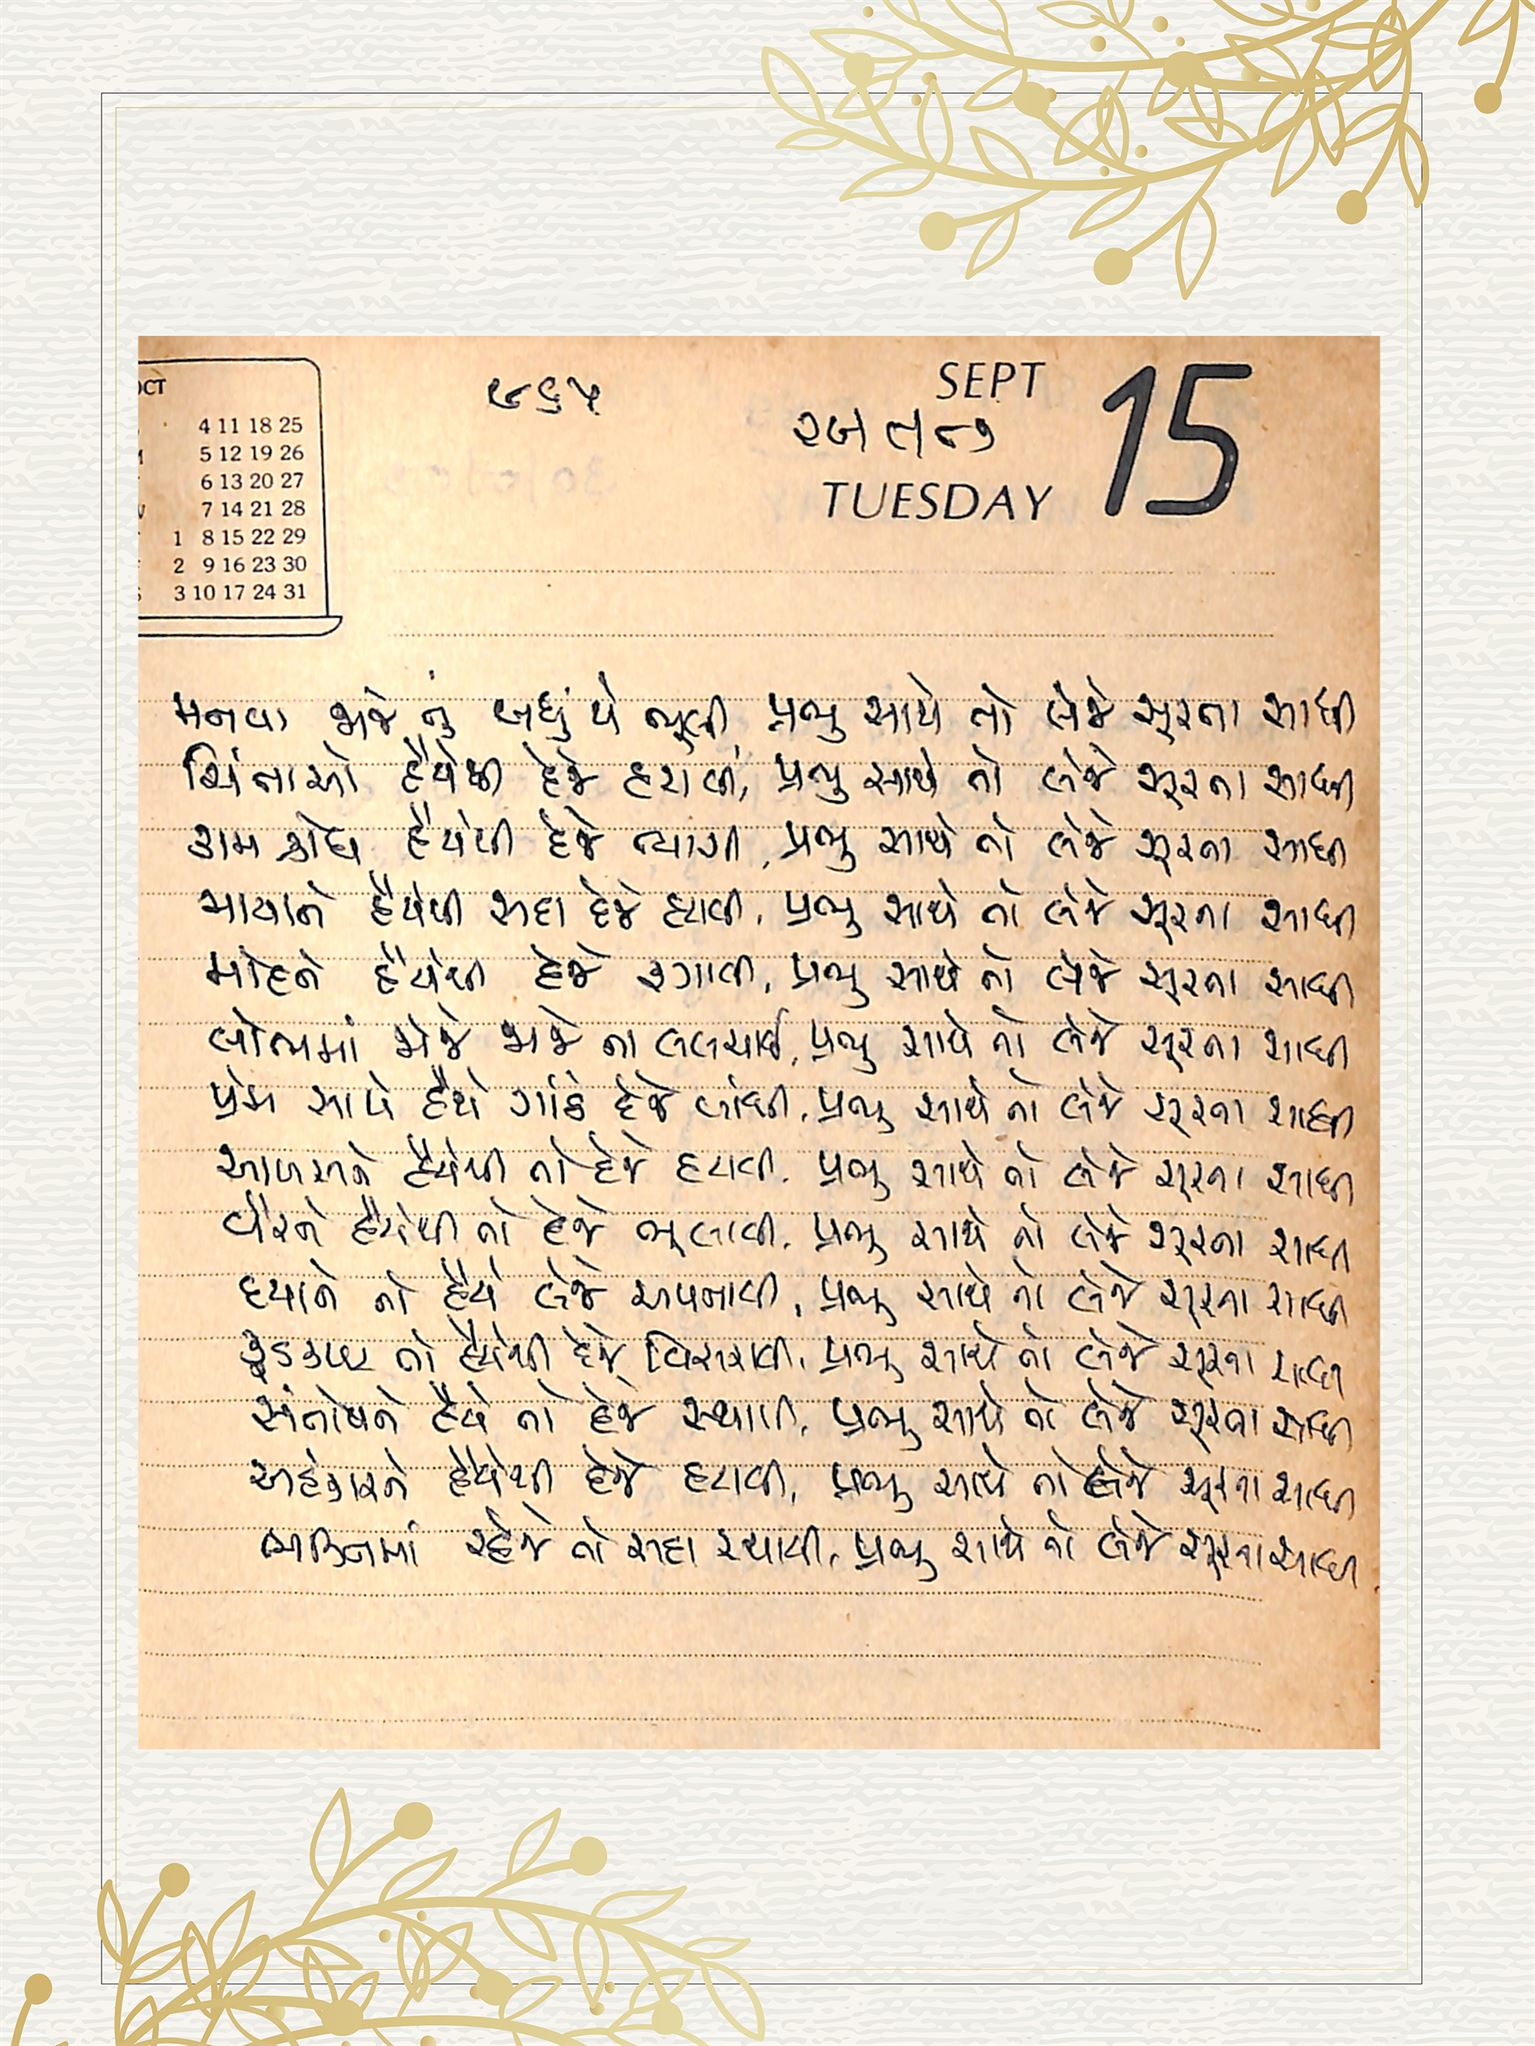 OCT
૯૬૫
SEPT
15
TUESDAY
4 11 18 25
5 12 19 26
6 13 20 27
7 14 21 28
1 8 15 22 29
2 9 16 23 30
3 10 17 24 31
મનવા આજે તું બધું યે ભૂલી, પ્રભુ સાથે તો લેજે સૂરતા સાધી
ચિંતાઓ હૈયેથી દેજે હટાવી, પ્રભુ સાથે તો લેજે સૂરતા સાધી
કામ ક્રોધ હૈયેથી દેજે ત્યાગી, પ્રભુ સાથે તો લેજે સૂરતા સાધી
માયાને હૈયેથી સદા દેજે હટાવી, પ્રભુ સાથે તો લેજે સૂરતા સાધી
મોહને હૈયેથી દેજે ફગાવી, પ્રભુ સાથે તો લેજે સૂરતા સાધી
લોભમાં આજે ના લલચાઈ, પ્રભુ સાથે તો લેજે સૂરતા સાધી
પ્રેમ સાથે હૈયે ગાંઠ દેજે બાંધી, પ્રભુ સાથે તો લેજે સૂરતા સાધી
આળસને હૈયેથી તો દેજે હટાવી, પ્રભુ સાથે તો લેજે સૂરતા સાધી
વૈરને હૈયેથી તો દેજે ભુલાવી, પ્રભુ સાથે તો લેજે સૂરતા સાધી
દયાને તો હૈયે લેજે અપનાવી, પ્રભુ સાથે તો લેજે સૂરતા સાધી
કૂડકપટ તો હૈયેથી દેજે વિસરાવી, પ્રભુ સાથે તો લેજે સૂરતા સાધી
સંતોષને હૈયે તો દેજે સ્થાપી, પ્રભુ સાથે તો લેજે સૂરતા સાધી
અહંકારને હૈયેથી દેજે હટાવી, પ્રભુ સાથે તો લેજે સૂરતા સાધી
ભક્તિમાં રહેજે તો સદા રચાવી, પ્રભુ સાથે તો લેજે સૂરતા સાધી